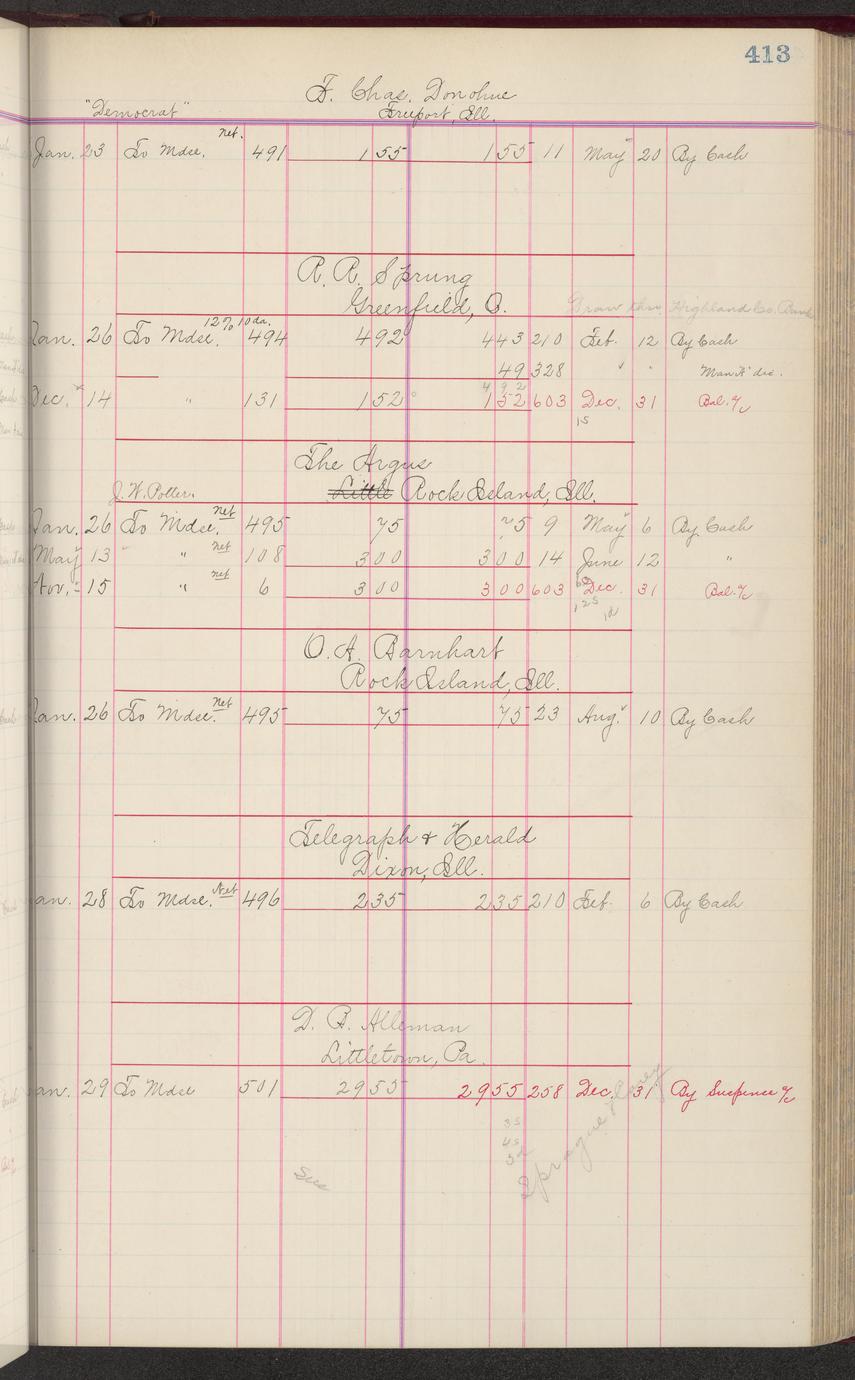 413
F. Chas. Donohue
"Democrat" Freeport, Ill.
net.
Jan. 23 To Mdse. 491 1 55 1 55 11 May 20 By Cash
R. R. Sprung
Greenfield, O. Draw thru Highland Co. Bank
12% 10 da.
Jan. 26 To Mdse. 494 4 92 4 43 210 Feb. 12 By Cash
49 328 " " dis.
4 92
Dec. 14 " 131 1 52 1 52 603 Dec. 31 Bal. a/c
15
The Argus
J. W. Potter. Little Rock Island, Ill.
net
Jan. 26 To Mdse. 495 75 75 9 May 6 By Cash
May 13 " net 108 3 00 3 00 14 June 12 "
Nov. 15 " net 6 3 00 3 00 603 Dec. 31 Bal. a/c
O. A. Barnhart
Rock Island, Ill.
Jan. 26 To Mdse. Net 495 75 75 23 Aug. 10 By Cash
Telegraph & Herald
Dixon, Ill.
an. 28 To Mdse. Net 496 2 35 2 35 210 Feb. 6 By Cash
D. B. Alleman
Littletown, Pa.
an. 29 To Mdse 501 29 55 29 55 258 Dec. 31 By Suspence a/c
35
45
Sprague
Sus